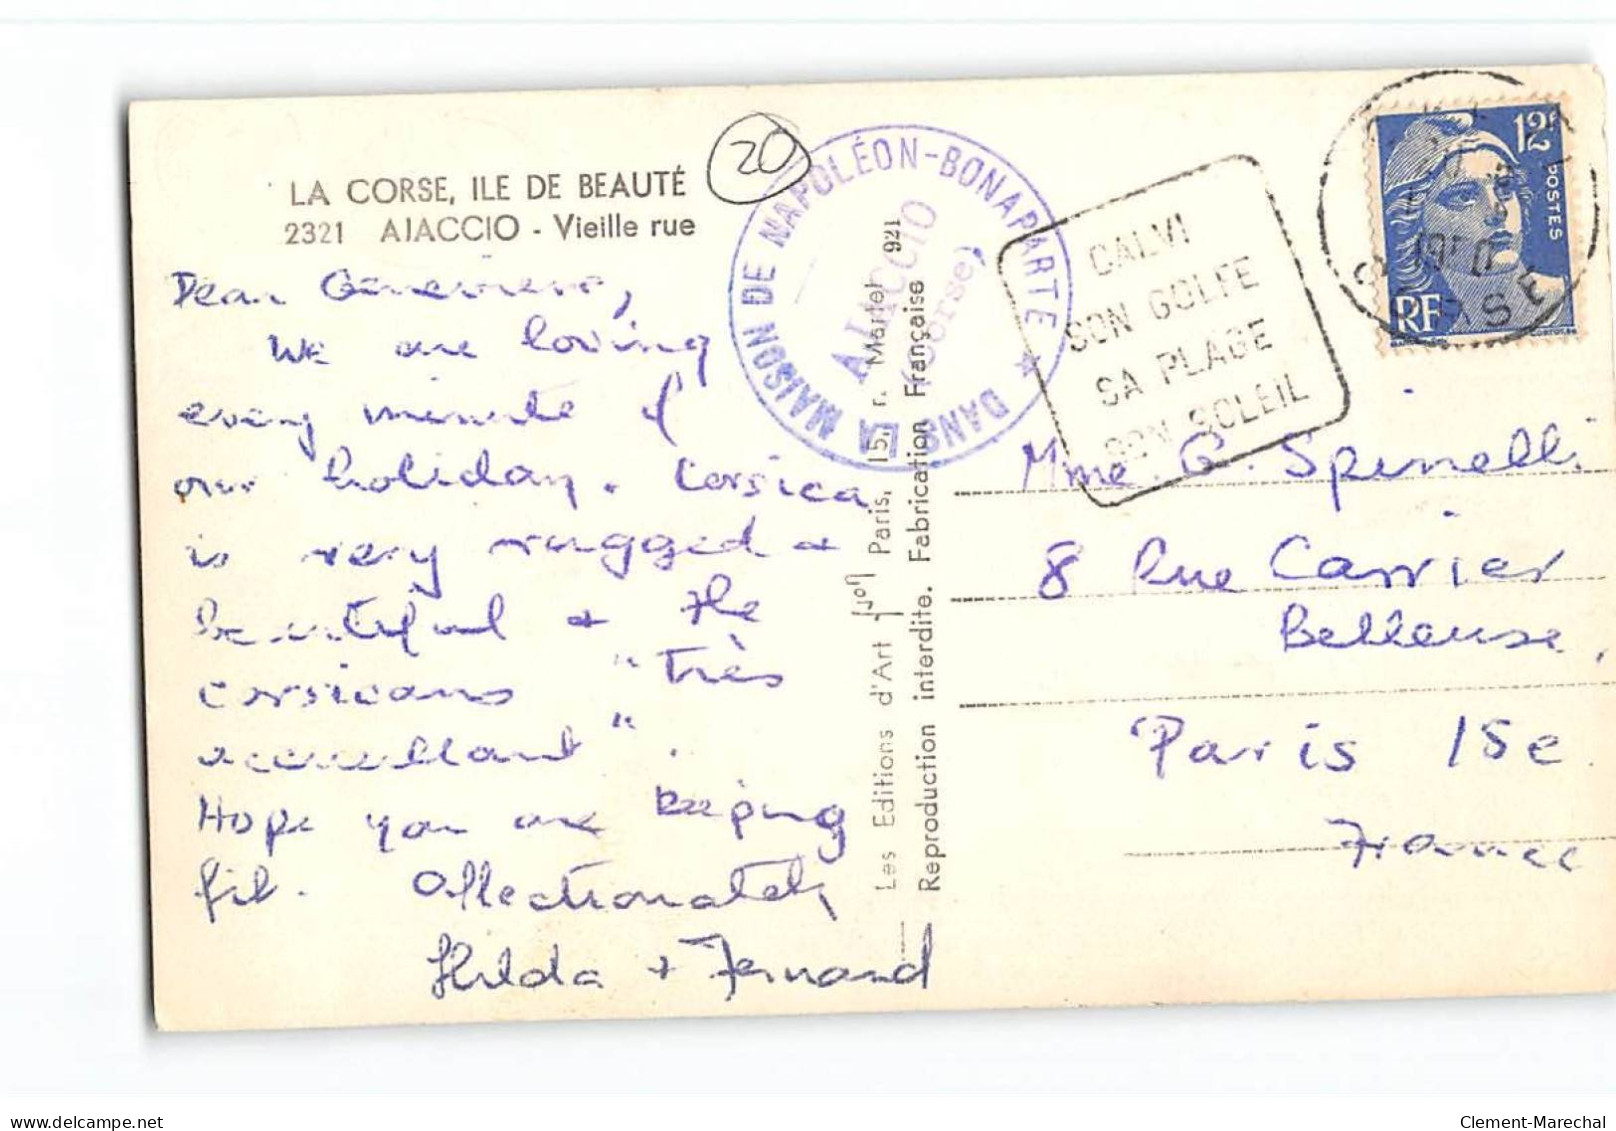 LA CORSE, ILE DE BEAUTÉ
2321 AJACCIO - Vieille rue
20
Dear Genevieve,
We are loving
every minute of
our holiday. Corsica
is very rugged +
beautiful + the
corsicans "très
accueillant".
Hope you are keeping
fit. Affectionately
Hilda + Fernand
DANS LA MAISON DE NAPOLÉON-BONAPARTE ★
AJACCIO
(Corse)
Les Editions d'Art yvon Paris, 15, r. Martel 921
Reproduction interdite. Fabrication Française
CALVI
SON GOLFE
SA PLAGE
SON SOLEIL
12F
POSTES
RF
Mme. G. Spinelli
8 Rue Carrier
Belleuse,
Paris 15e
France
delcampe.net
Clement-Marechal